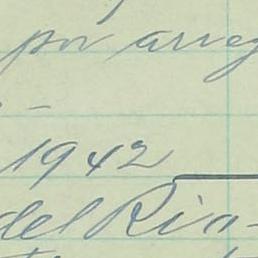 por arreg
1942
del Rio-